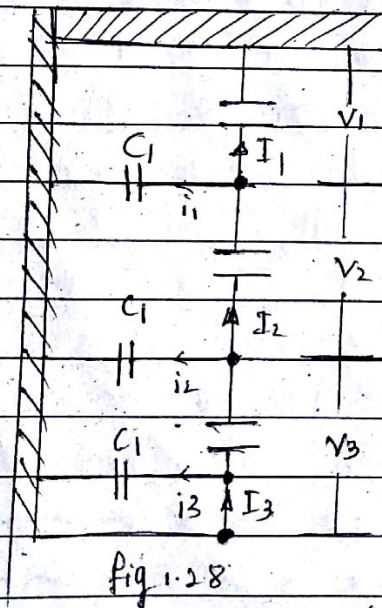 V1
C1
I1
i1
V2
C1
I2
i2
C1
V3
i3 I3
fig 1.28